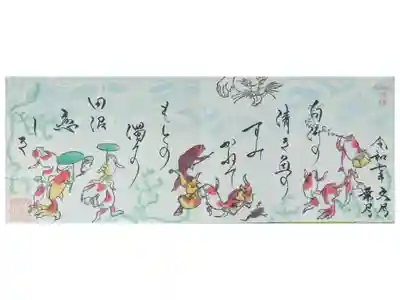 令和
葉月
白河の
清き魚の
すみ
かねて
もとの
濁りの
田沼
恋
し
き